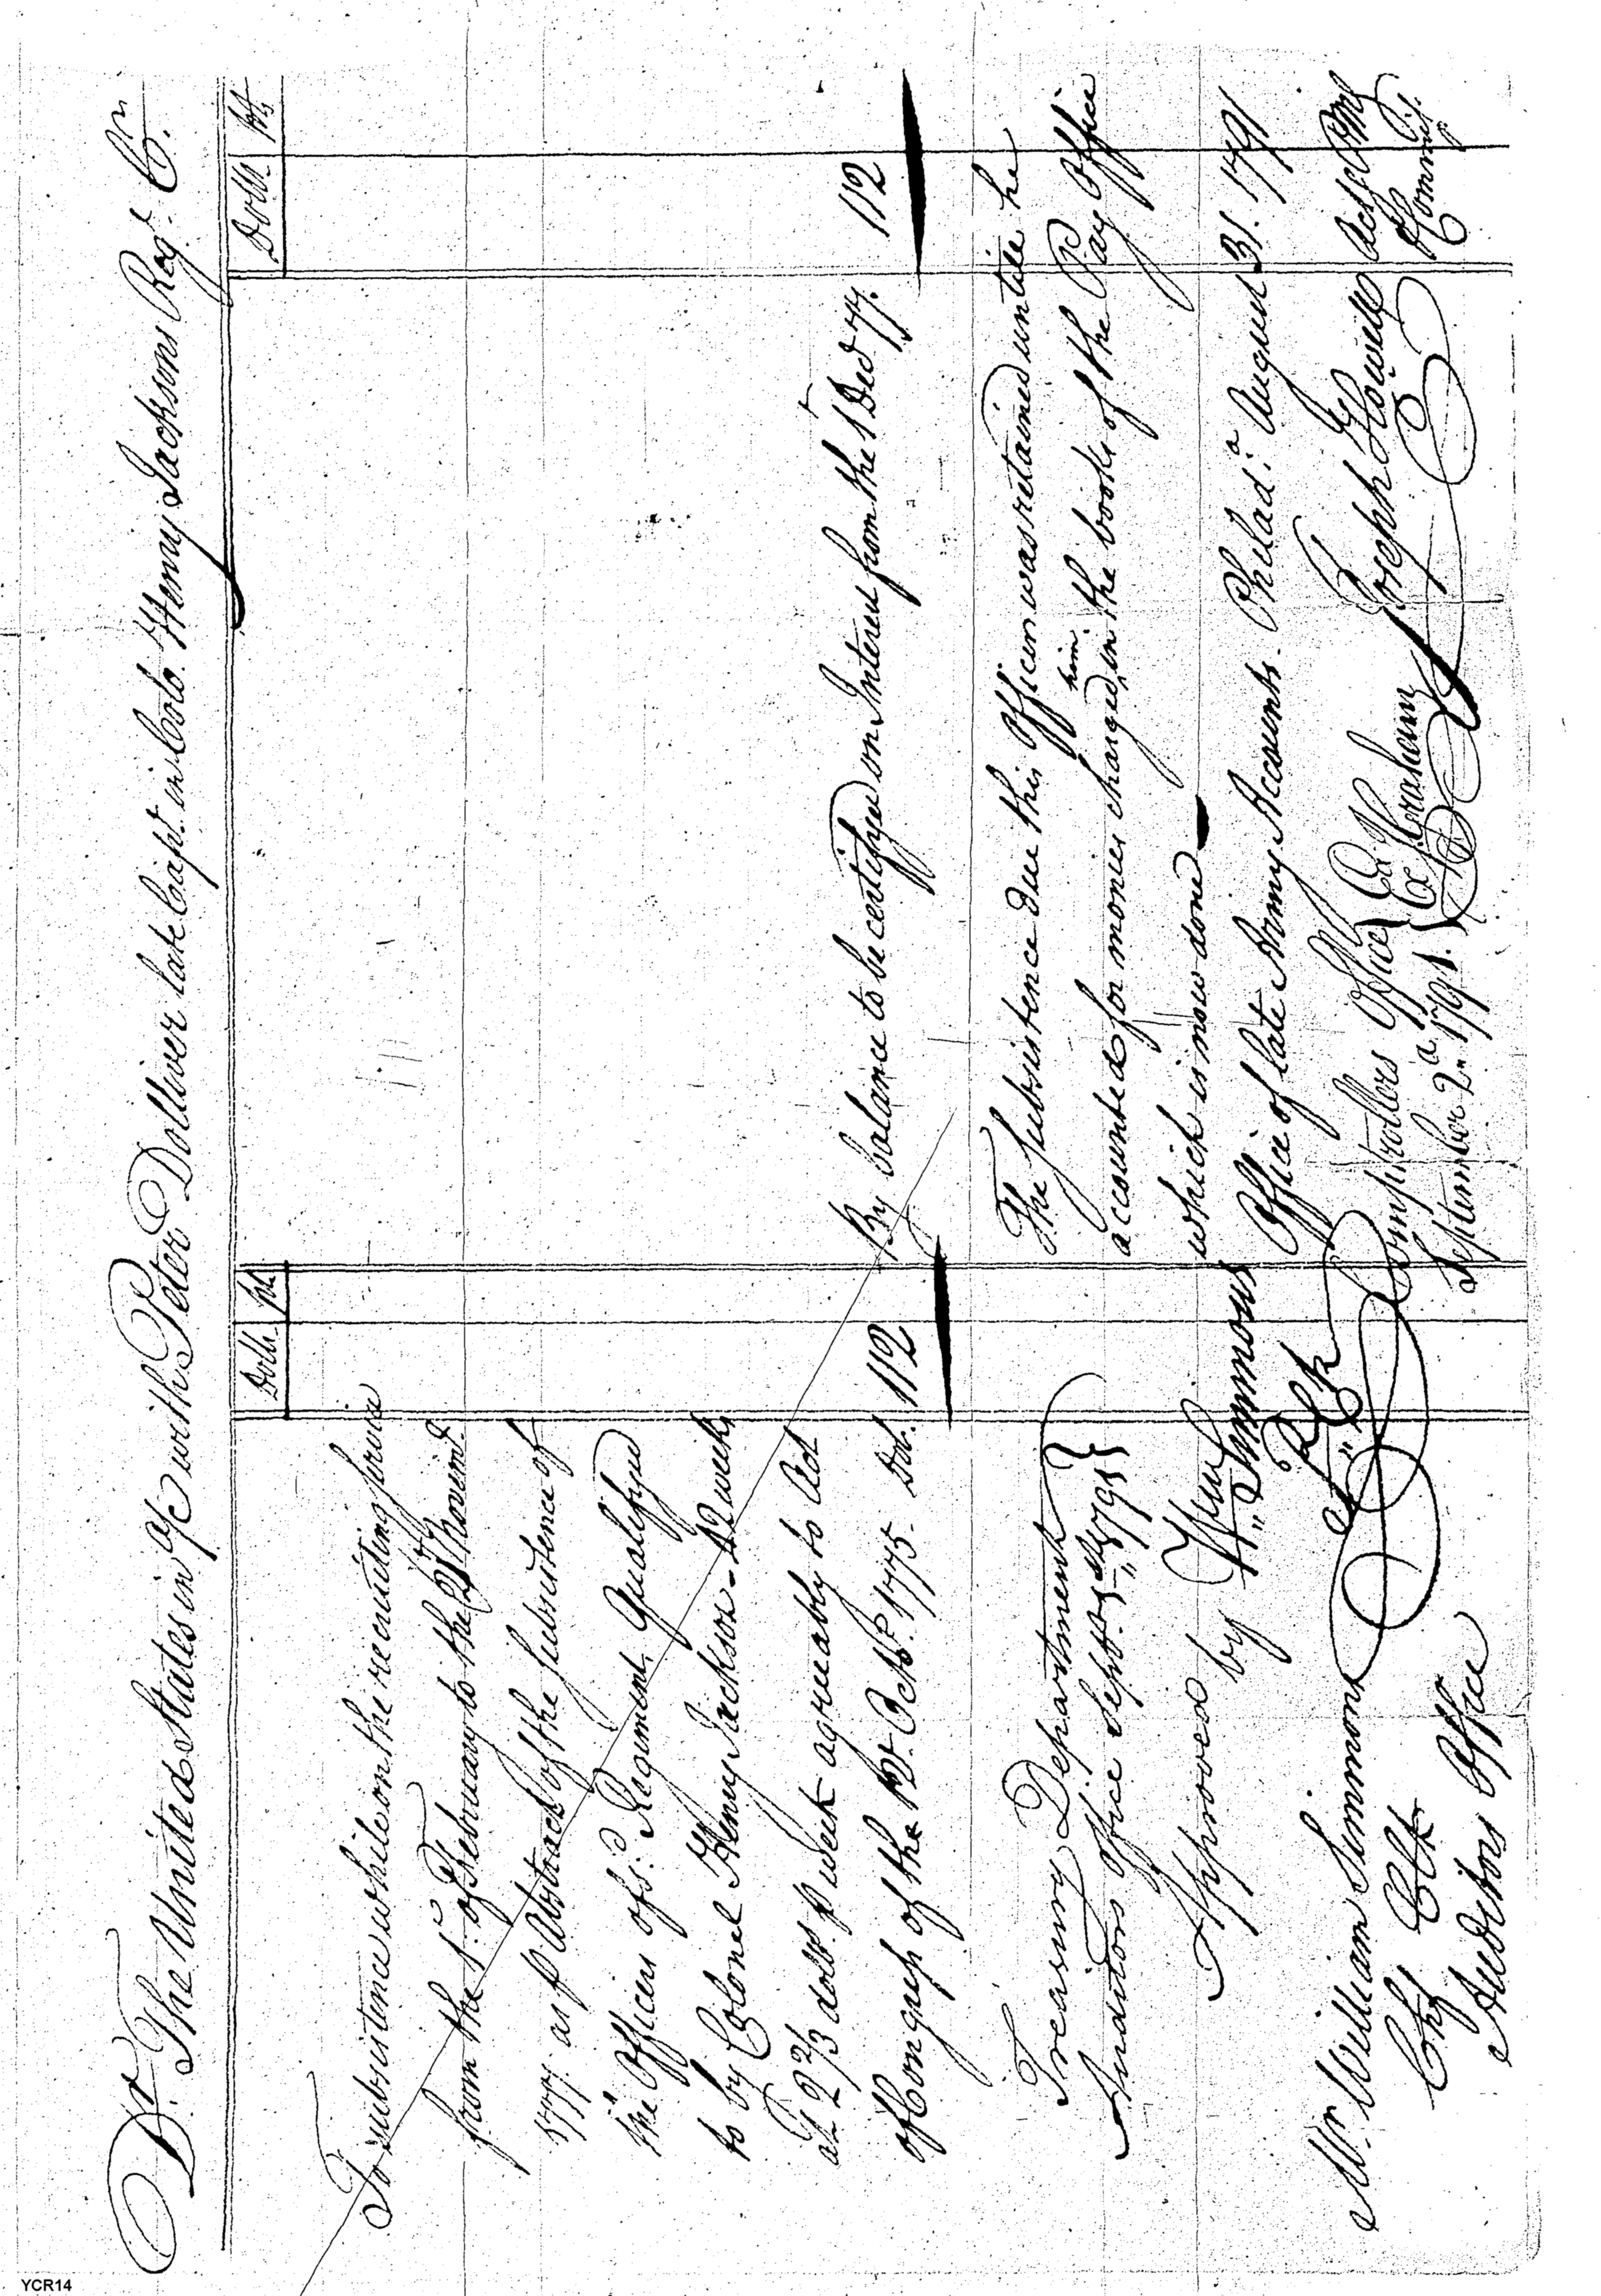 Dr. The United States in a/c with Peter Dolliver late Capt. in Colo. Henry Jacksons Regt. Cr.
Dolls 90ths
Dolls 90ths
To subsistence while on the recruiting service
from the 1st of February to the 24th Novemr.
1777 as p Abstract of the subsistence of
the Officers of sd. Regiment, Qualifyed
to by Colonel Henry Jackson - 42 weeks
at 2 2/3 dolls. p week agreeably to Act
of Congress of the 12th Octobr. 1775. Dol. 112
By balance to be certifyed on Interest from the 1 Decr 77. 112
The subsistence due this Officer was retained untill he
accounted for monies charged him in the books of the Pay Office
which is now done
Office of late Army Accounts. Philada. August 31. 1791
Joseph Howell Actg PMG
& Commr.
Treasury Department }
Auditors Office Septr. 1st 1791 }
Approved by Wm. Simmons
P. Clk
Mr. William Simmons
Chf Clk
Auditors Office
Comptrollers Office }
September 2d 1791. }
Ex Graham